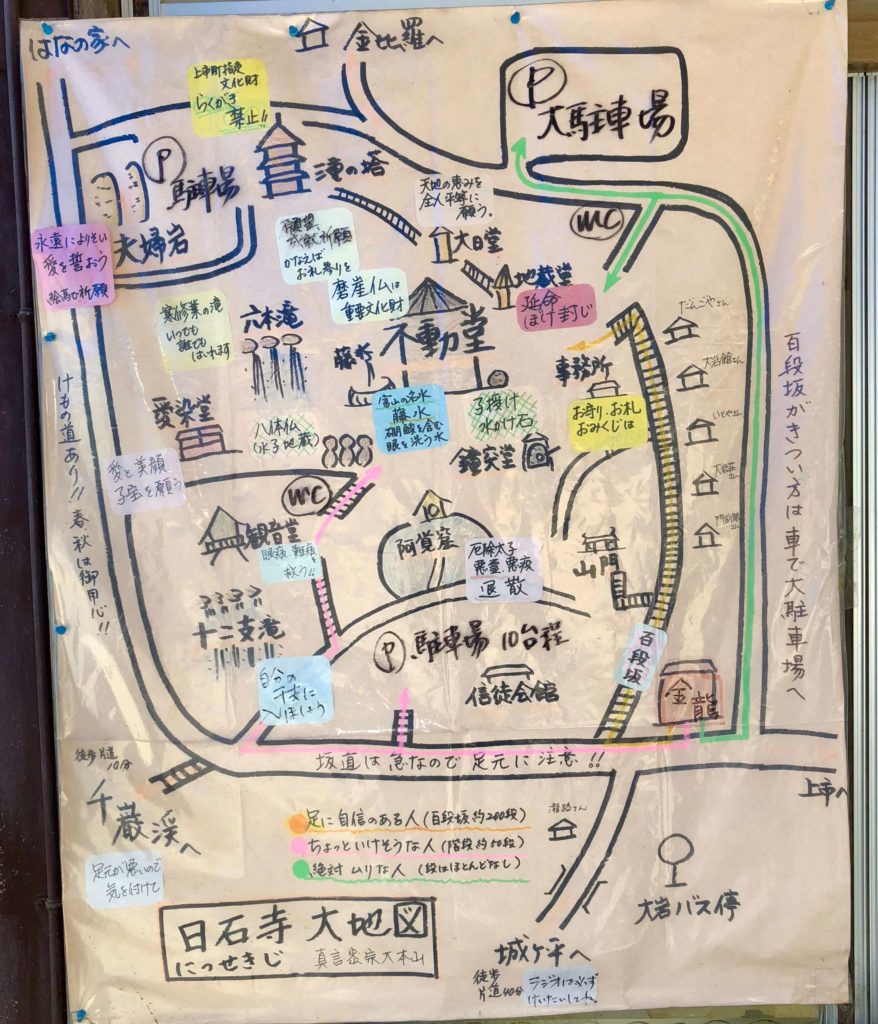 はなの家へ
金比羅へ
上市町指定
文化財
らくがき
禁止!!
P
大駐車場
P
駐車場
滝の塔
天地の恵みを
全人平等に
願う。
WC
夫婦岩
永遠によりそい
愛を誓おう
絵馬で祈願
願望、
成就祈願
かなえば
お札参りを
大日堂
地蔵堂
延命
ぼけ封じ
磨崖仏は
重要文化財
寒修業の滝
いつでも
誰でも
はいれます
六本滝
不動堂
藤水
だんごやさん
事務所
大岩館さん
お守り、お札
おみくじは
富山の名水
藤水
硼酸を含む
眼を洗う水
子授け
水かけ石
愛染堂
八体仏
(水子地蔵)
鐘突堂
愛と美顔
子宝を願う
WC
観音堂
眼疾、難病を
救う!!
阿覚窟
厄除太子
悪霊、悪疫
退散
山門
十二支滝
自分の
干支に
入ましょう
P
駐車場 10台程
信徒会館
百段坂
金龍
けもの道あり!! 春秋は御用心!!
百段坂がきつい方は車で大駐車場へ
坂道は急なので足元に注意!!
上市へ
徒歩片道
10分
千巌渓へ
足元が悪いので
気を付けて
足に自信のある人(百段坂約200段)
ちょっといけそうな人(階段約50段)
絶対ムリな人(段はほとんどなし)
大岩バス停
日石寺 大地図
にっせきじ 真言密宗大本山
城ヶ平へ
徒歩
片道40分
ラジオは必ず
けいたいしてね。